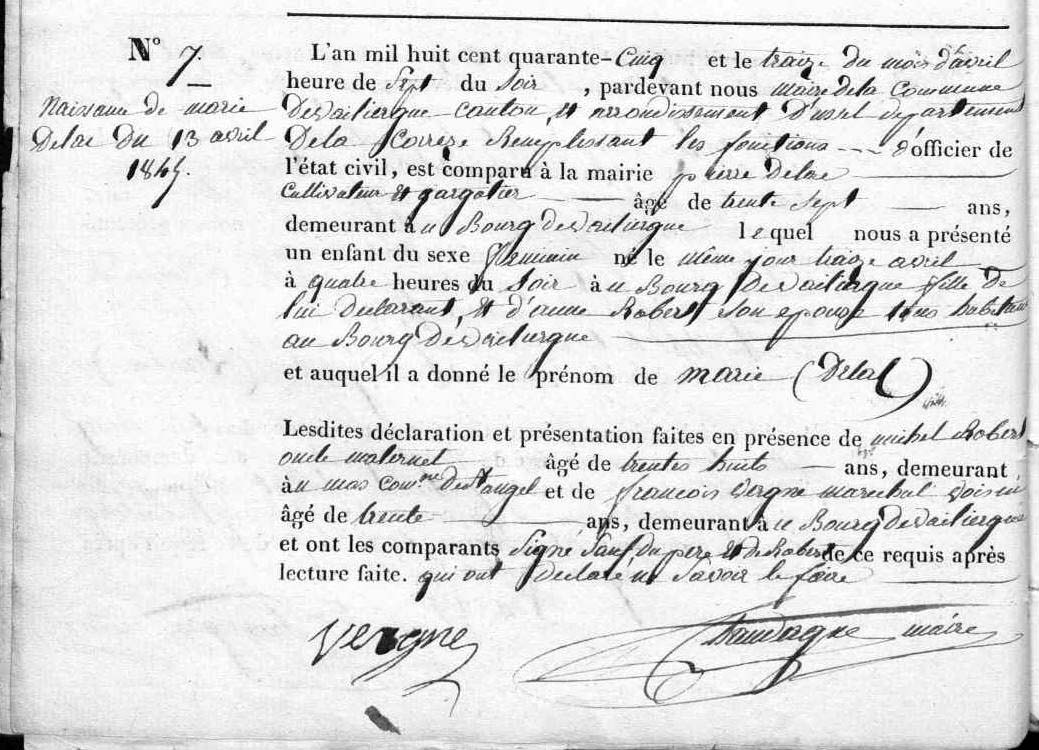 N° 7.
Naissance de marie
Delac du 13 avril
1845.
L'an mil huit cent quarante-Cinq et le traize du mois d'avril
heure de Sept du Soir , pardevant nous maire de la Commune
De Valiergue canton et arrondissement D'ussel departement
De la Correze Remplissant les fonctions d'officier de
l'état civil, est comparu à la mairie pierre Delac
Cultivateur et gargotier âgé de trente sept ans,
demeurant au Bourg de Valiergue lequel nous a présenté
un enfant du sexe feminin né le même jour traize avril
à quatre heures du Soir au Bourg De Valiergue fille de
lui Declarant, et d'anne Robert Son epouse tous habitan
au Bourg de Valiergue
et auquel il a donné le prénom de marie (Delac)
Lesdites déclaration et présentation faites en présence de michel Robert
oncle maternel âgé de trentes huits ans, demeurant
au mas Comune de St angel et de francois Vergne marechal voisin
âgé de trente ans, demeurant au Bourg de Valiergue
et ont les comparants Signé Sauf du pere et de Robert de ce requis après
lecture faite. qui ont Declaré ne Savoir le faire
Vergne
maire